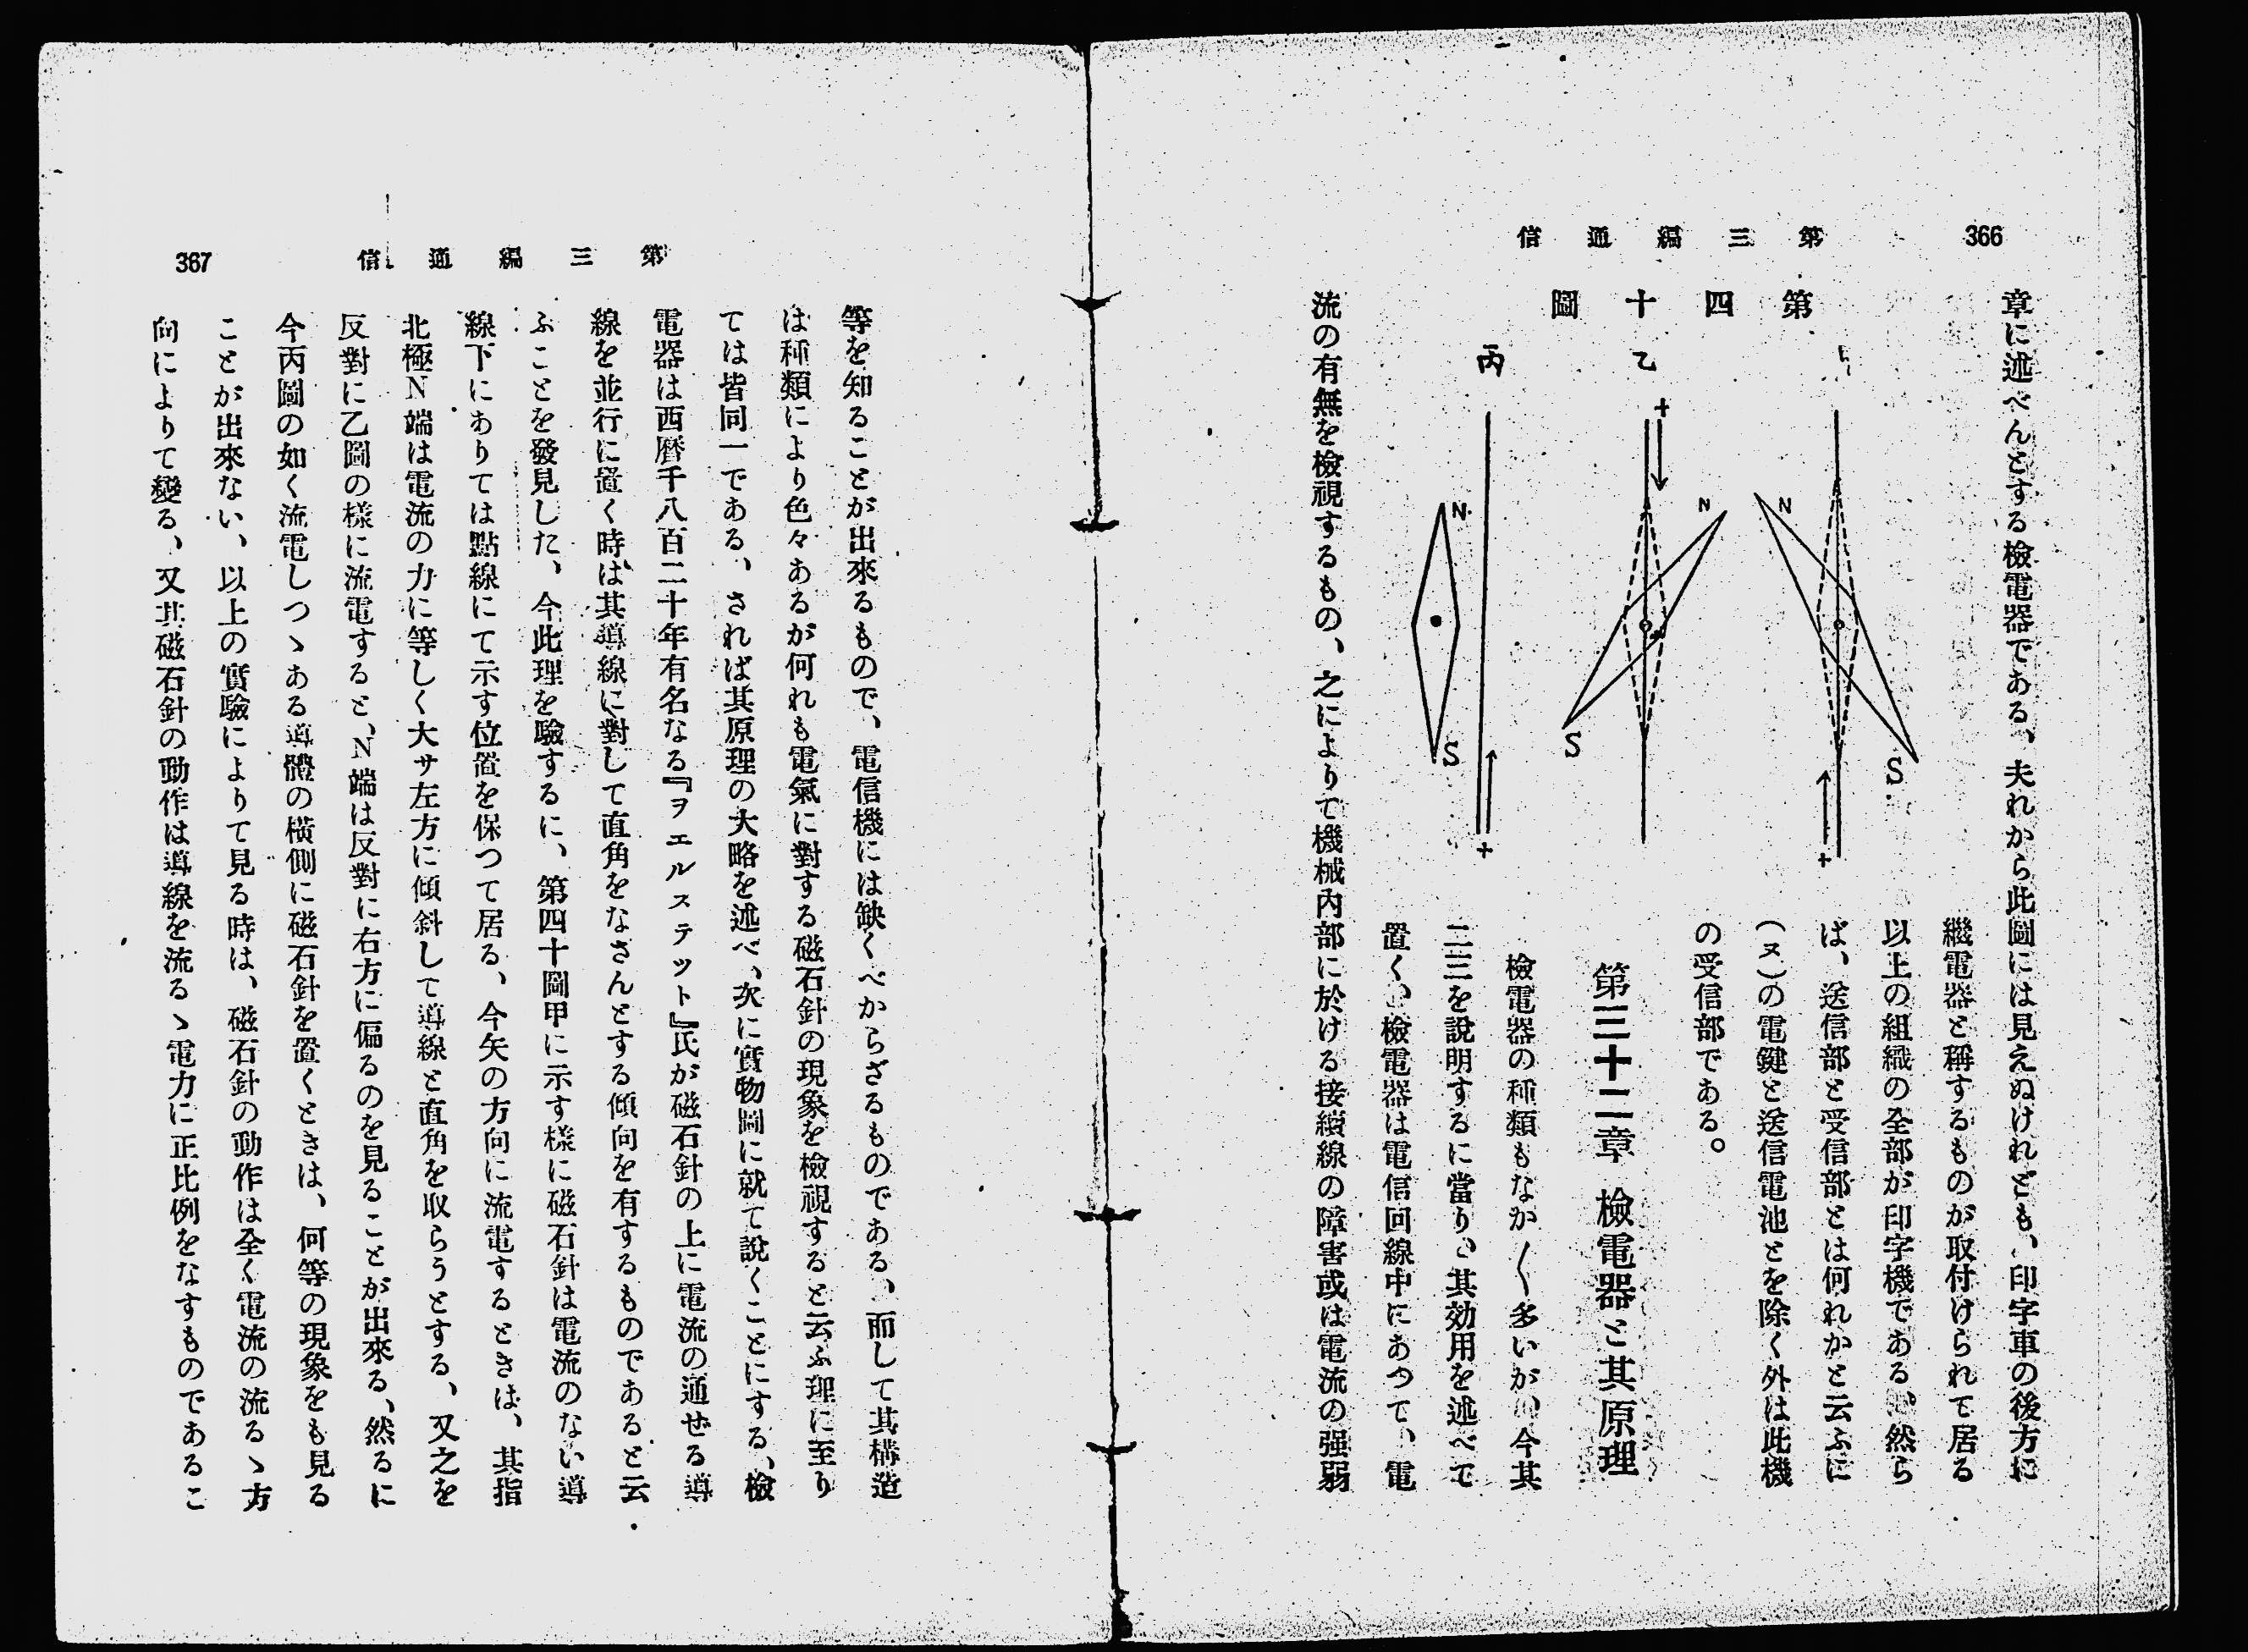 366
第三編通信
章に述べんとする檢電器である、夫れから此圖には見えぬけれども、印字車の後方に
繼電器と稱するものが取付けられて居る
以上の組織の全部が印字機である、然ら
ば、送信部と受信部とは何れかと云ふに
(ヌ)の電鍵と送信電池とを除く外は此機
の受信部である。
第四十圖
N
S
+
乙
+
N
S
丙
N
S
+
第三十二章 檢電器と其原理
檢電器の種類もなか〱多いが、今其
二三を說明するに當り、其効用を述べて
置く、檢電器は電信回線中にあつて、電
流の有無を檢視するもの、之によりて機械内部に於ける接續線の障害或は電流の强弱
第三編通信
367
等を知ることが出來るもので、電信機には缺くべからざるものである、而して其構造
は種類により色々あるが何れも電氣に對する磁石針の現象を檢視すると云ふ理に至り
ては皆同一である、されば其原理の大略を述べ、次に實物圖に就て說くことにする、檢
電器は西曆千八百二十年有名なる『ヲエルステット』氏が磁石針の上に電流の通ぜる導
線を並行に置く時は其導線に對して直角をなさんとする傾向を有するものであると云
ふことを發見した、今此理を驗するに、第四十圖甲に示す樣に磁石針は電流のない導
線下にありては點線にて示す位置を保つて居る、今矢の方向に流電するときは、其指
北極N端は電流の力に等しく大サ左方に傾斜して導線と直角を取らうとする、又之を
反對に乙圖の樣に流電すると、N端は反對に右方に偏るのを見ることが出來る、然るに
今丙圖の如く流電しつゝある導體の橫側に磁石針を置くときは、何等の現象をも見る
ことが出來ない、以上の實驗によりて見る時は、磁石針の動作は全く電流の流るゝ方
向によりて變る、又其磁石針の動作は導線を流るゝ電力に正比例をなすものであるこ